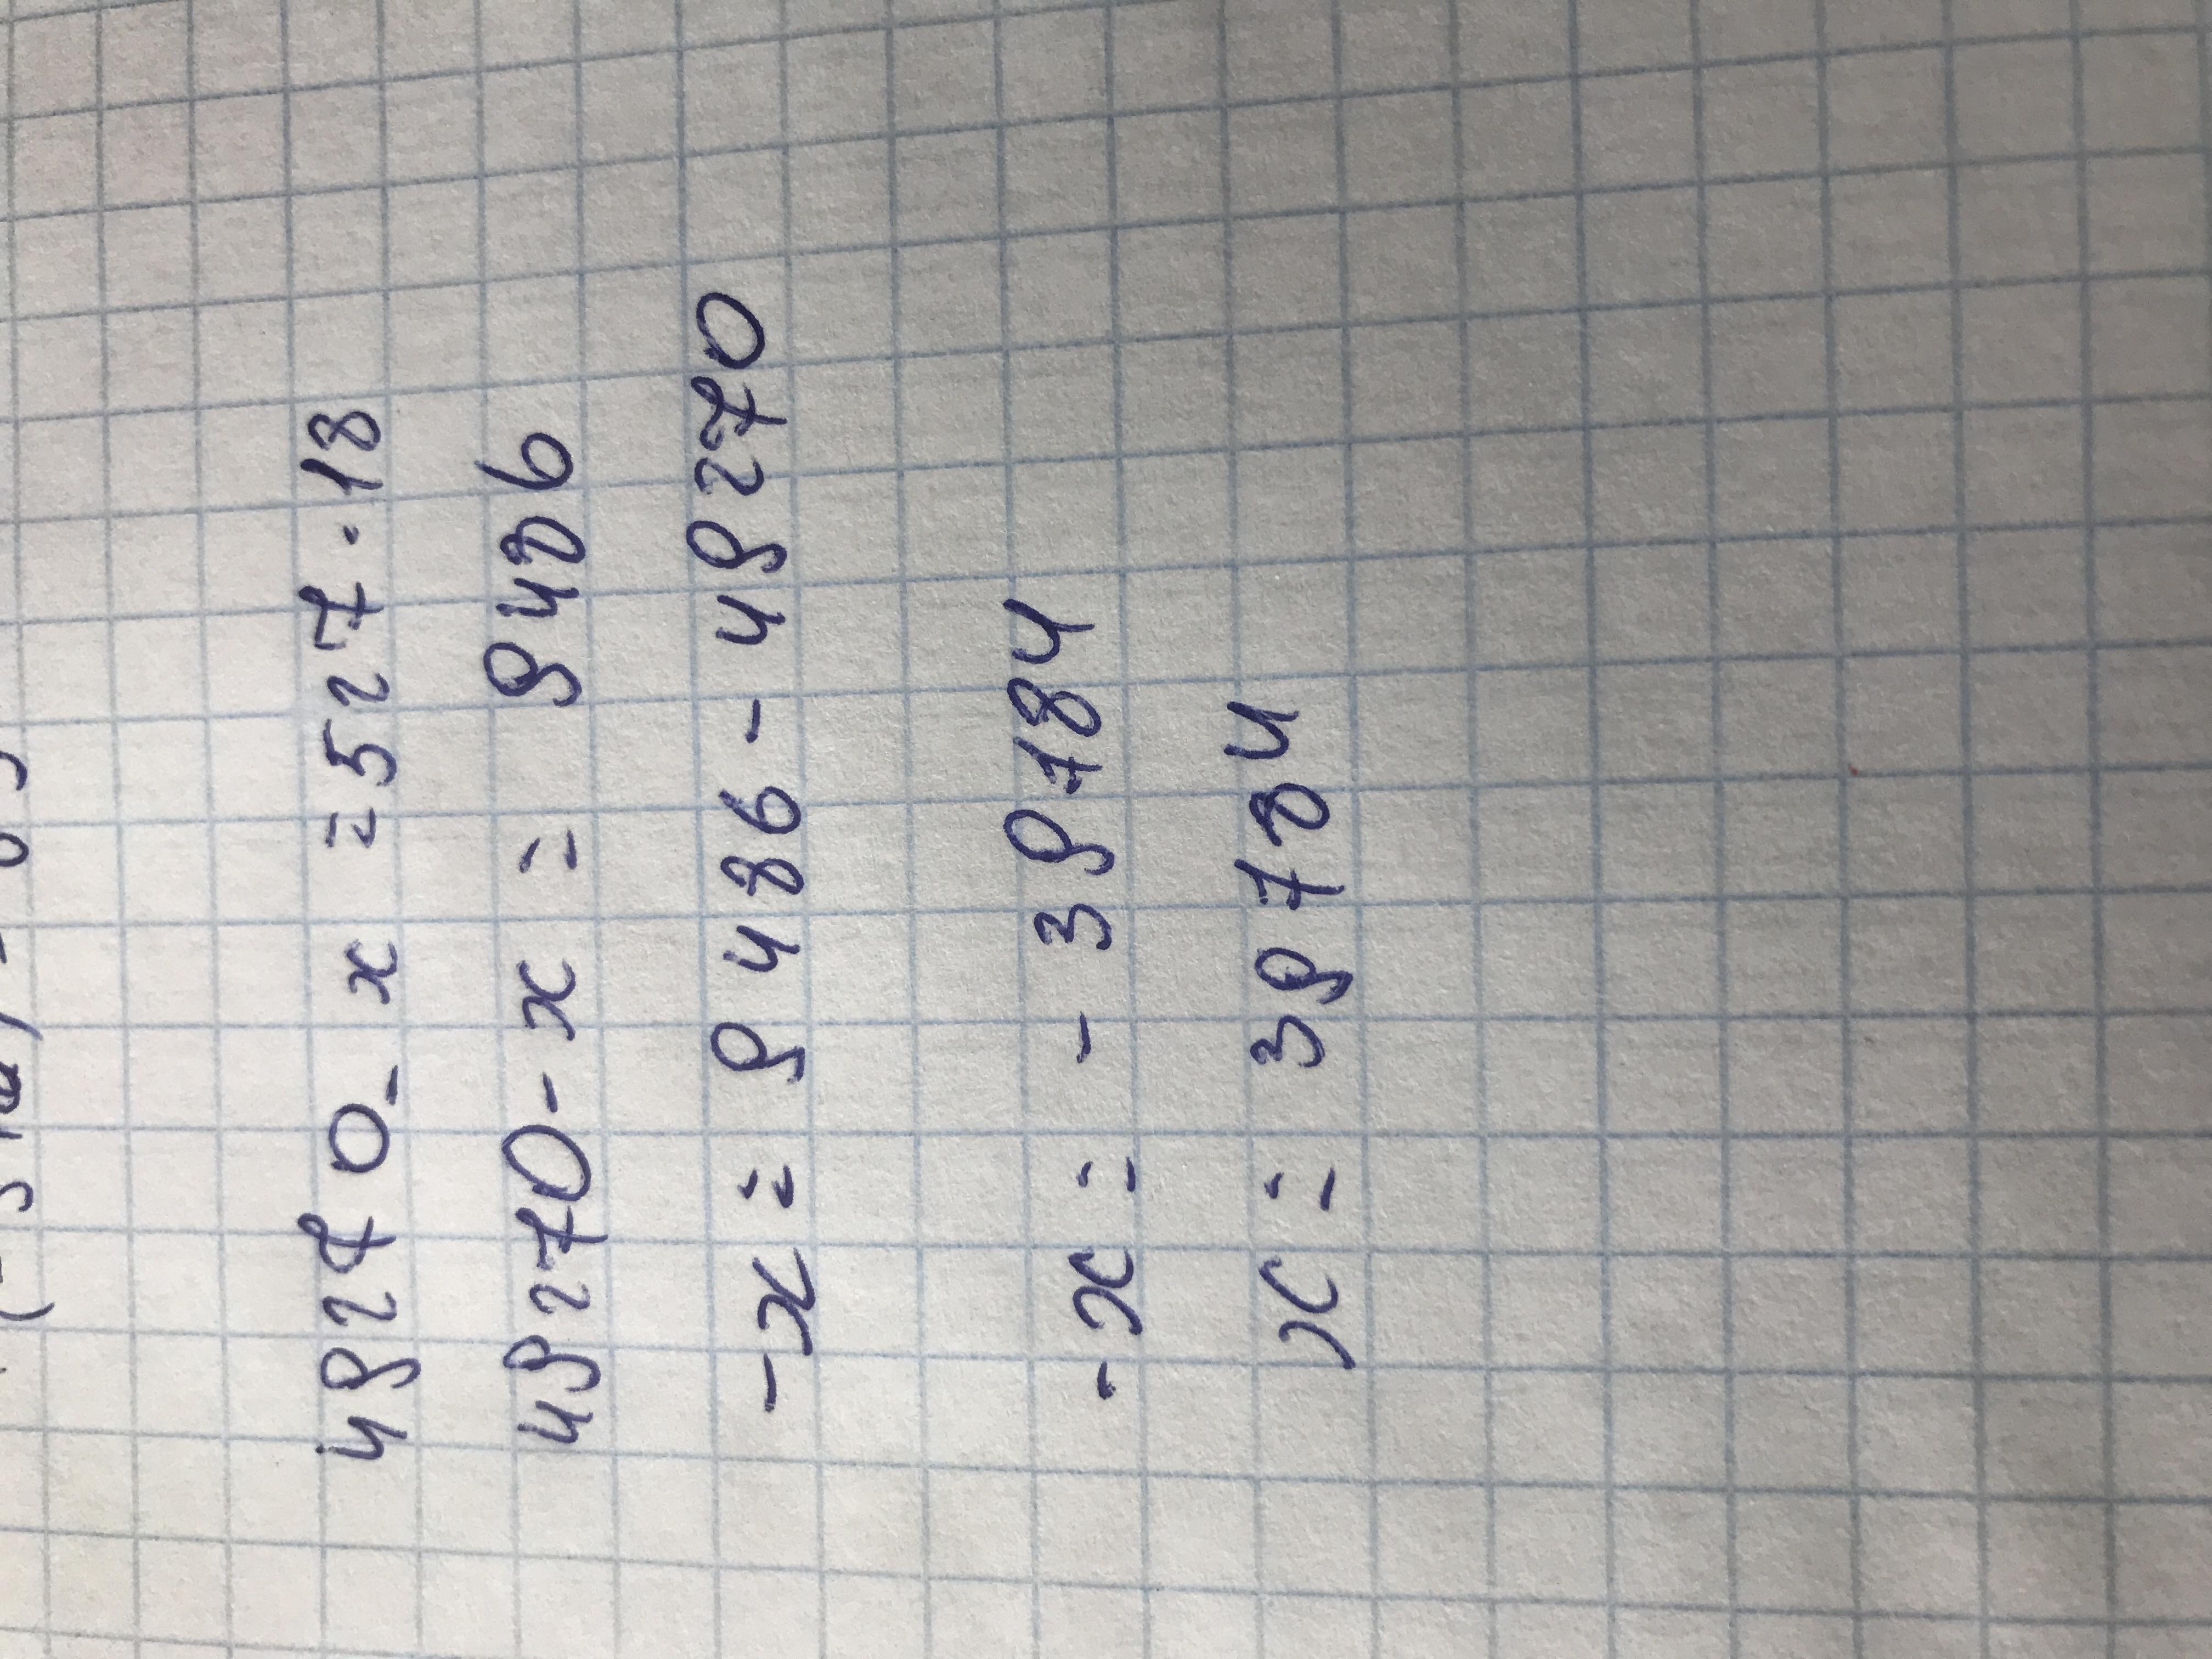 49270 - x = 527 · 18
49270 - x = 9486
-x = 9486 - 49270
-x = - 39784
x = 39784